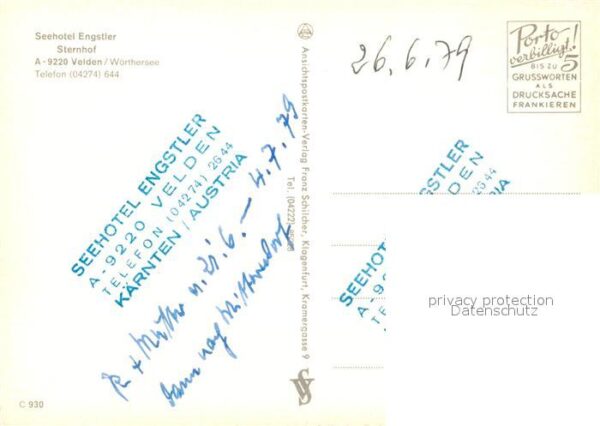 Seehotel Engstler
Sternhof
A - 9220 Velden / Wörthersee
Telefon (04274) 644
SEEHOTEL ENGSTLER
A - 9220 VELDEN
TELEFON (04274) 26 44
KÄRNTEN / AUSTRIA
+ Mutter 6. – 4.7.79
dann nach
C 930
Ansichtspostkarten-Verlag Franz Schilcher, Klagenfurt, Kramergasse 9
Tel. (04222)
26.6.79
Porto
verbilligt!
BIS ZU 5
GRUSSWORTEN
ALS
DRUCKSACHE
FRANKIEREN
STLER
DEN
26 44
RIA
SEEHOT
A - 9
TE
K
privacy protection
Datenschutz